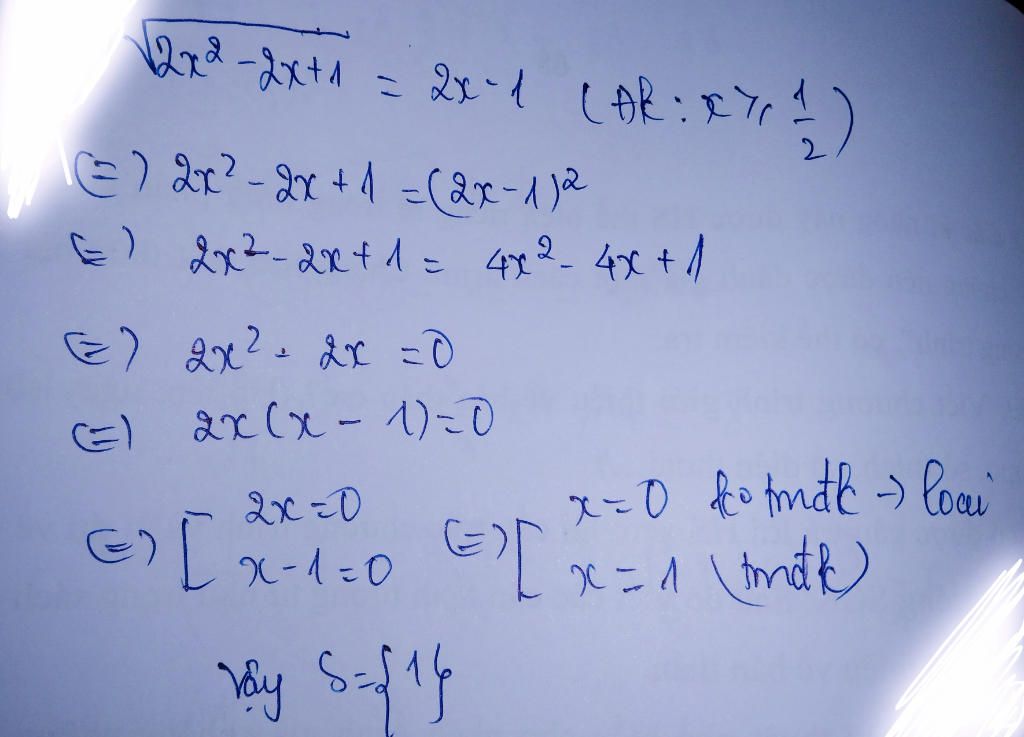 √(2x² - 2x + 1) = 2x - 1 (ĐK: x ≥ 1/2)
(=) 2x² - 2x + 1 = (2x - 1)²
(=) 2x² - 2x + 1 = 4x² - 4x + 1
(=) 2x² - 2x = 0
(=) 2x(x - 1) = 0
(=) [ 2x = 0 (=) [ x = 0 ko tmđk → loại
x - 1 = 0 x = 1 (tmđk)
Vậy S = {1}